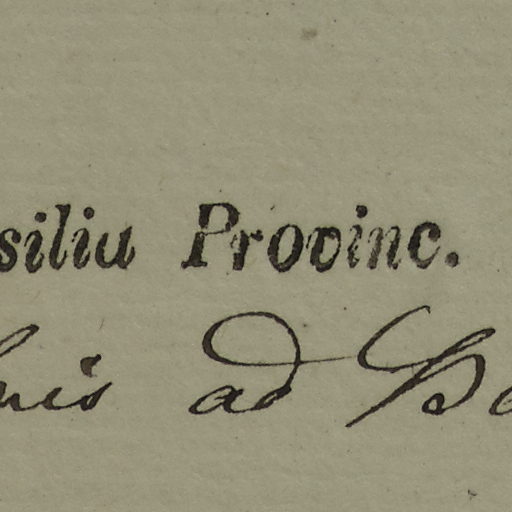 silia Provinc.
nis ad